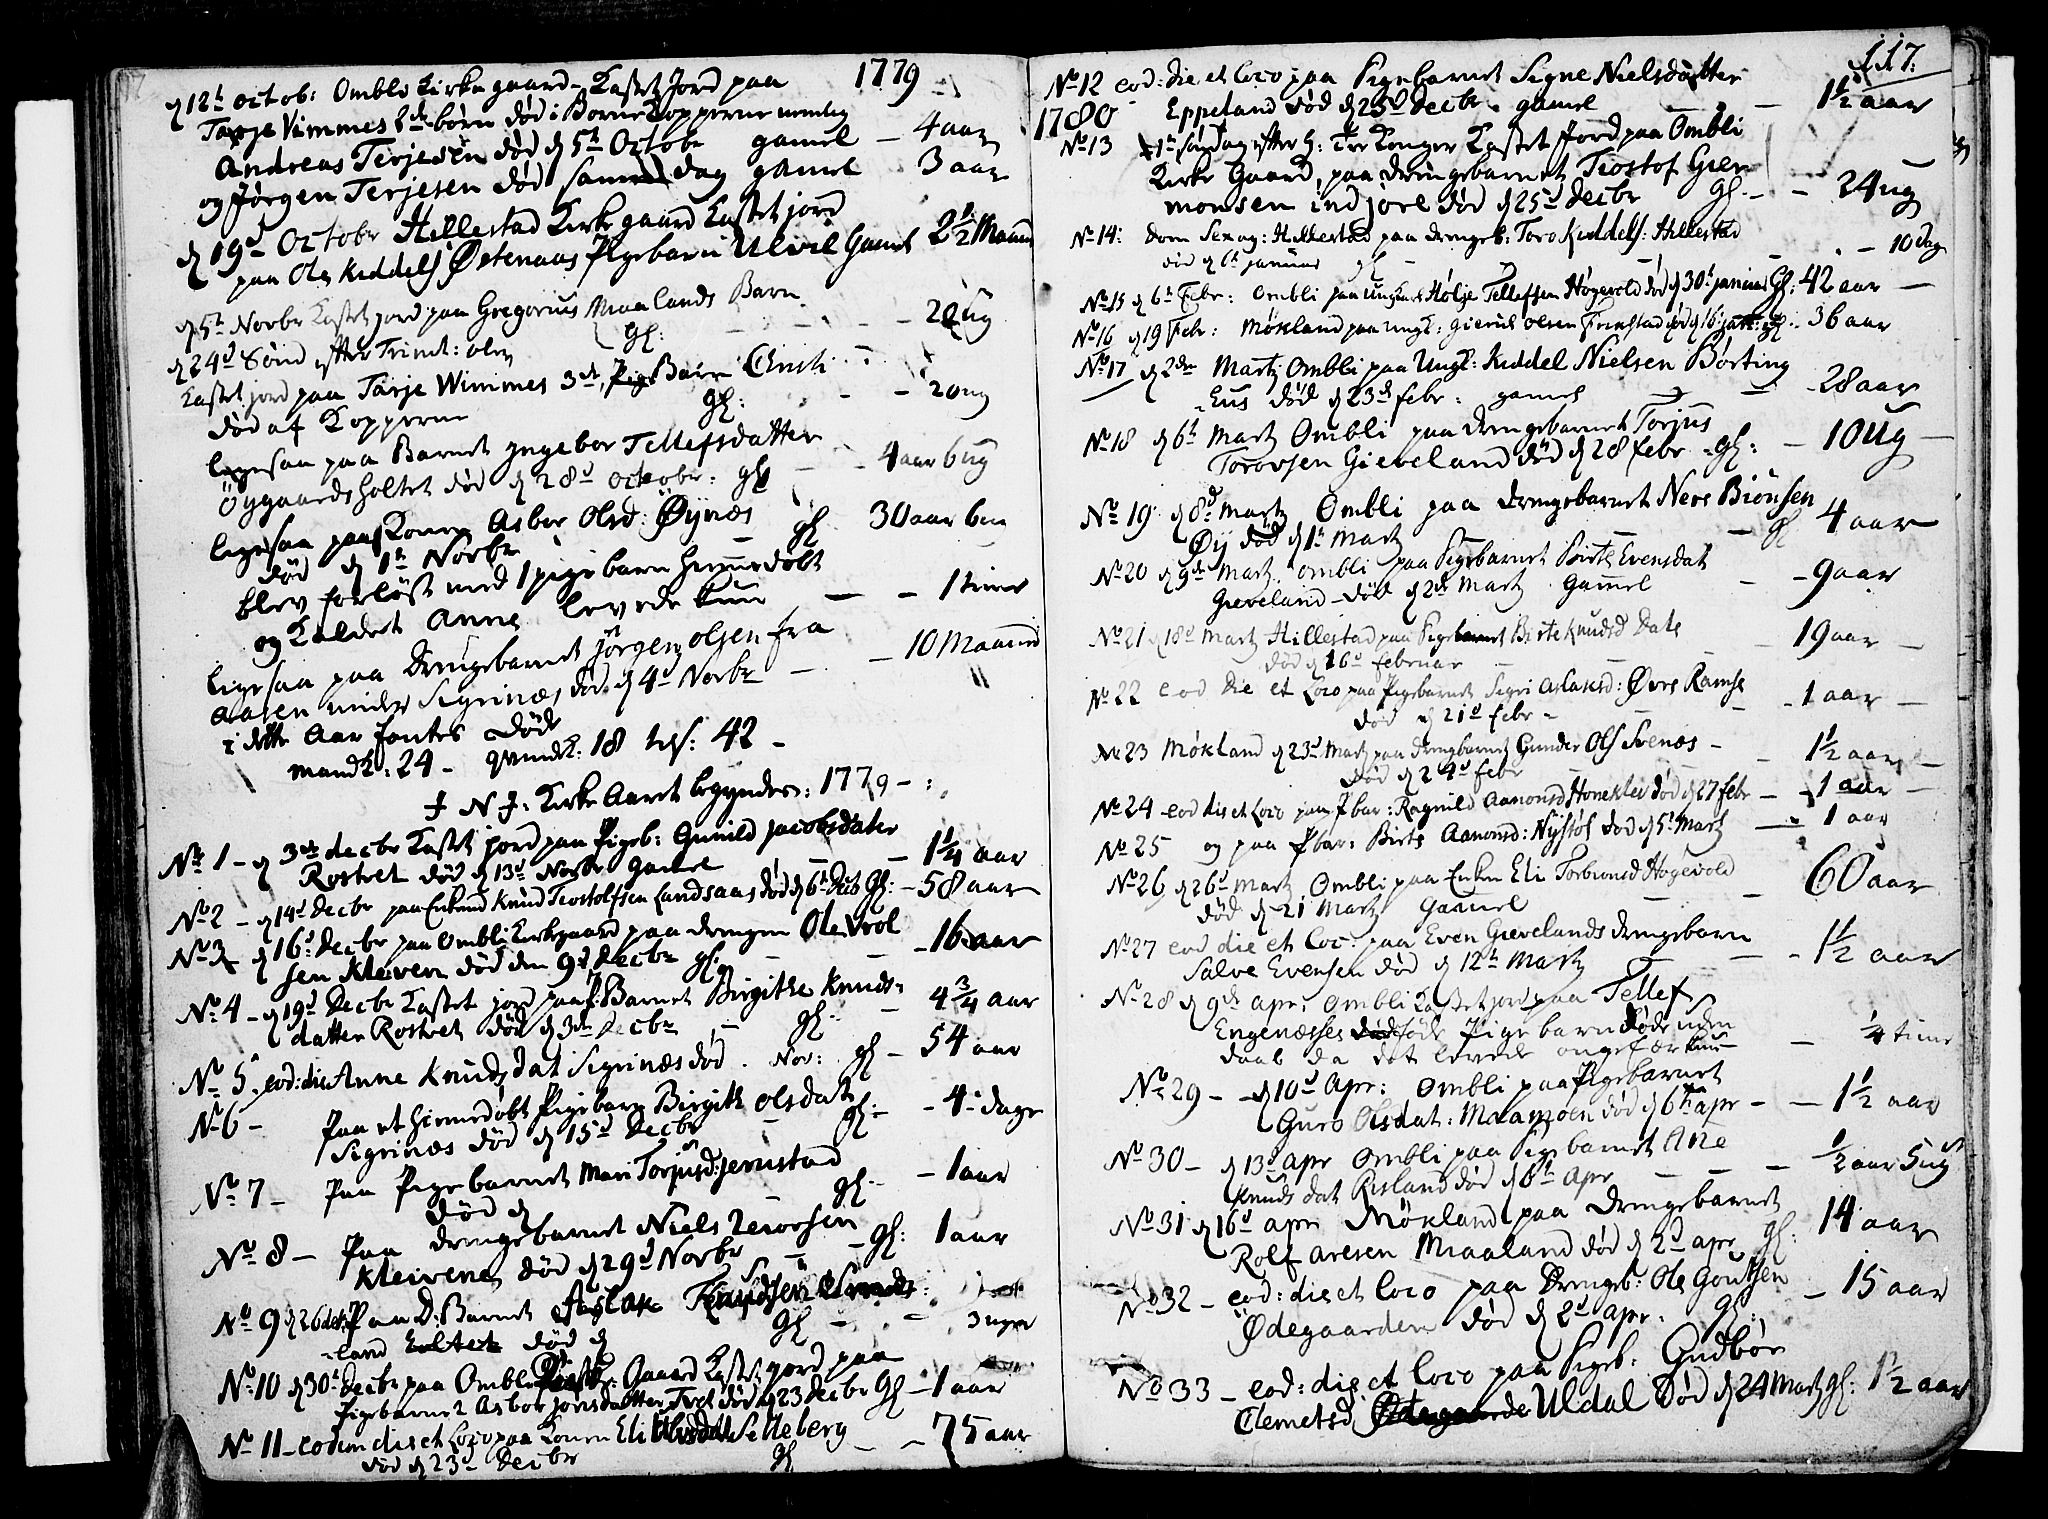 1779
d 12te octob: Ombli Kirke gaard Kastet Jord paa
Tarje Vimmes 2de børn død i Børne Kopperne nemlig
Andreas Terjesen død d 5te Octobr gamel — 4 aar
og Jørgen Terjesen død samme dag gamel 3 aar
d 19d Octobr Hillestad Kirke gaard Kastet jord
paa Ole Kiddelsens Østenaas Pigebarn Ulvil Gamel 2 1/2 Maaned
d 5te Novbr Kastet jord paa Gregorius Maalands Barn
gl: 2 Ug
d 24d Sønd efter Trinit:
Kastet jord paa Tarje Wimmes 3de Pige Barn Christi
død af Kopperne gl: — 20 ug
ligesaa paa Barnet Ingebor Tellefsdatter
Øygaardsholtet død d 28d octobr: gl 4 aar 6 ug
ligesaa paa Konen Asbor Olsd: Øynæs
død d 1te Novbr gl 30 aar 6
blev forløst med 1 pigebarn hiemmedøbt
og Kaldet Anne levede kun — 1 time
ligesaa paa Drengebarnet Jørgen Olsen fra
Aasen under Sigrinæs død d 4d Novbr — 10 Maaned
i dette Aar fontes Døde
mandk: 24 — qvindk: 18 tils: 42 —
J N J: Kirke Aaret begyndes: 1779 — :
No 1 — d 3de decbr Kastet jord paa Pigeb: Gunild Jacobsdater
Rostvet død d 13d Novbr Gamel — 1 1/4 aar
No 2 — d 14d Decbr paa Enkemd Knud Tiostolfsen Landsaas død d 6te Decb Gl: — 58 aar
No 3 d 16d Decbr paa Ombli Kirkegaard paa drengen Ole Vrol
sen Kleiven død den 9d Decbr gl: — 16 aar
No 4 — d 19d Decbr Kastet jord paa P: Barnet Birgithe Knuds-
datter Rostvet død d 3de Decbr gl: — 4 3/4 aar
No 5. eod: die Anne Knudsdat Sigrinæs død . Nov: gl — 54 aar
No 6 — Paa et hiemedøbt Pigebarn Birgith Olsdatr
Sigrinæs død d 15d Decbr gl: — 4: dage
No 7 — Paa Pigebarnet Mari Torjusd: Jernstad
død d gl: — 1 aar
No 8 — Paa drengebarnet Niels Terovsen
Kleivene død d 29d Novbr — gl: 1 aar
No 9 d 26 dec: Paa D: Barnet Aslak Knudsen
land død d gl — 3 uger
No 10 d 30d Decbr paa Ombli Kirke Gaard Kastet jord paa
Pigebarnet Asbor Jonsdatter død d 23 decbr Gl — 1 aar
No 11 — eodem die et Loco paa Konen Eli Olsdat Selleberg
død d 23d Decbr gl — 75 aar
117.
No 12 eod: die et Loco paa Pigebarnet Signe Nielsdatter
Eppeland død d 23d Decbr. gamel — 1 1/2 aar
1780
No 13 1te søndag efter H: Tre Konger Kastet Jord paa Ombli
Kirke Gaard, paa drengebarnet Tiostof Gier
monsen indjore død d 25d Decbr Gl. — 24 ug
No 14: Dom Sexag: Hillestad paa drengeb: Toro Kiddels: Hillestad
død d 6te Januar gl — 10 dage
No 15 d 6te Febr: Ombli paa Ungkarl Holje Tellefsen Høgevold død d 30d januar Gl: 42 aar —
No 16 d 19 Febr: Møkland paa ungk: Gierul Olsen Fireftad død d 16: gl. 36 aar
No 17 d 2den Martz Ombli paa Ungk: Kiddel Nielsen Børting
-Hus død d 23d febr: gamel — 28 aar
No 18 d 6te Martz Ombli paa Drengebarnet Torjus
Torovsen Gieveland død d 28 febr. gl: — 10 Ug —
No 19 d 8de Martz Ombli paa Drengebarnet Neri Biønsen
Øy død d 1te Martz — gl 4 aar
No 20 d 9de Martz. Ombli paa Pigebarnet Birte Evensdat
Gieveland — død d 2de Martz Gamel — 9 aar
No 21 d 18d Martz Hillestad paa Pigebarnet Birte Knudsd Dale
død d 16d februar — 19 aar —
No 22 eod die et Loco paa Pigebarnet Sigri Aslaksd: Øvre Ramse
død d 21d febr — 1 aar —
No 23 Møkland d 23d Martz paa drengbarnet Gunder Ols Svenæs —
død d 24d febr — 1 1/2 aar —
No 24 — eod die et Loco paa P bar: Ragnild Aanonsd Honeklev død d 27 febr — 1 aar —
No 25 og paa P bar: Birte Aanonsd: Nystøl død d 5te Martz — 1 aar
No 26 d 26d Martz Ombli paa Enken Eli Torbionsd Høgevold
død d 21 Martz Gamel — 60 aar
No 27 eod die et Loc: paa Even Gievelands drengebarn
Salve Evensen død d 12te Martz — 1 1/2 aar
No 28 d 9de apr: Ombli Kastet jord paa Tellef
Engenæsses føde Pigebarn døde uden
daab da det levede ongefær kun — 1/4 time
No 29 — d 10d Apr: Ombli paa Pigebarnet
Guro Olsdat: Maamoen død d 6te apr — 1 1/2 aar
No 30 — d 13d apr Ombli paa Pigebarnet Ane
Knudsdat Risland død d 6te apr — 1/2 aar 5 ug
No 31 d 16d apr Møkland paa Drengebarnet
Rolf Aresen Maaland død d 2d apr gl: 14 aar
No 32 — eod: die et loco paa Drengb: Ole Goutsen
Ødegaarden død d 2d apr. gl: — 15 aar
No 33 — eod: die et loco paa Pigeb: Gudbør
Clemetsd Uldal død d 24 Martz gl: 1 1/2 aar